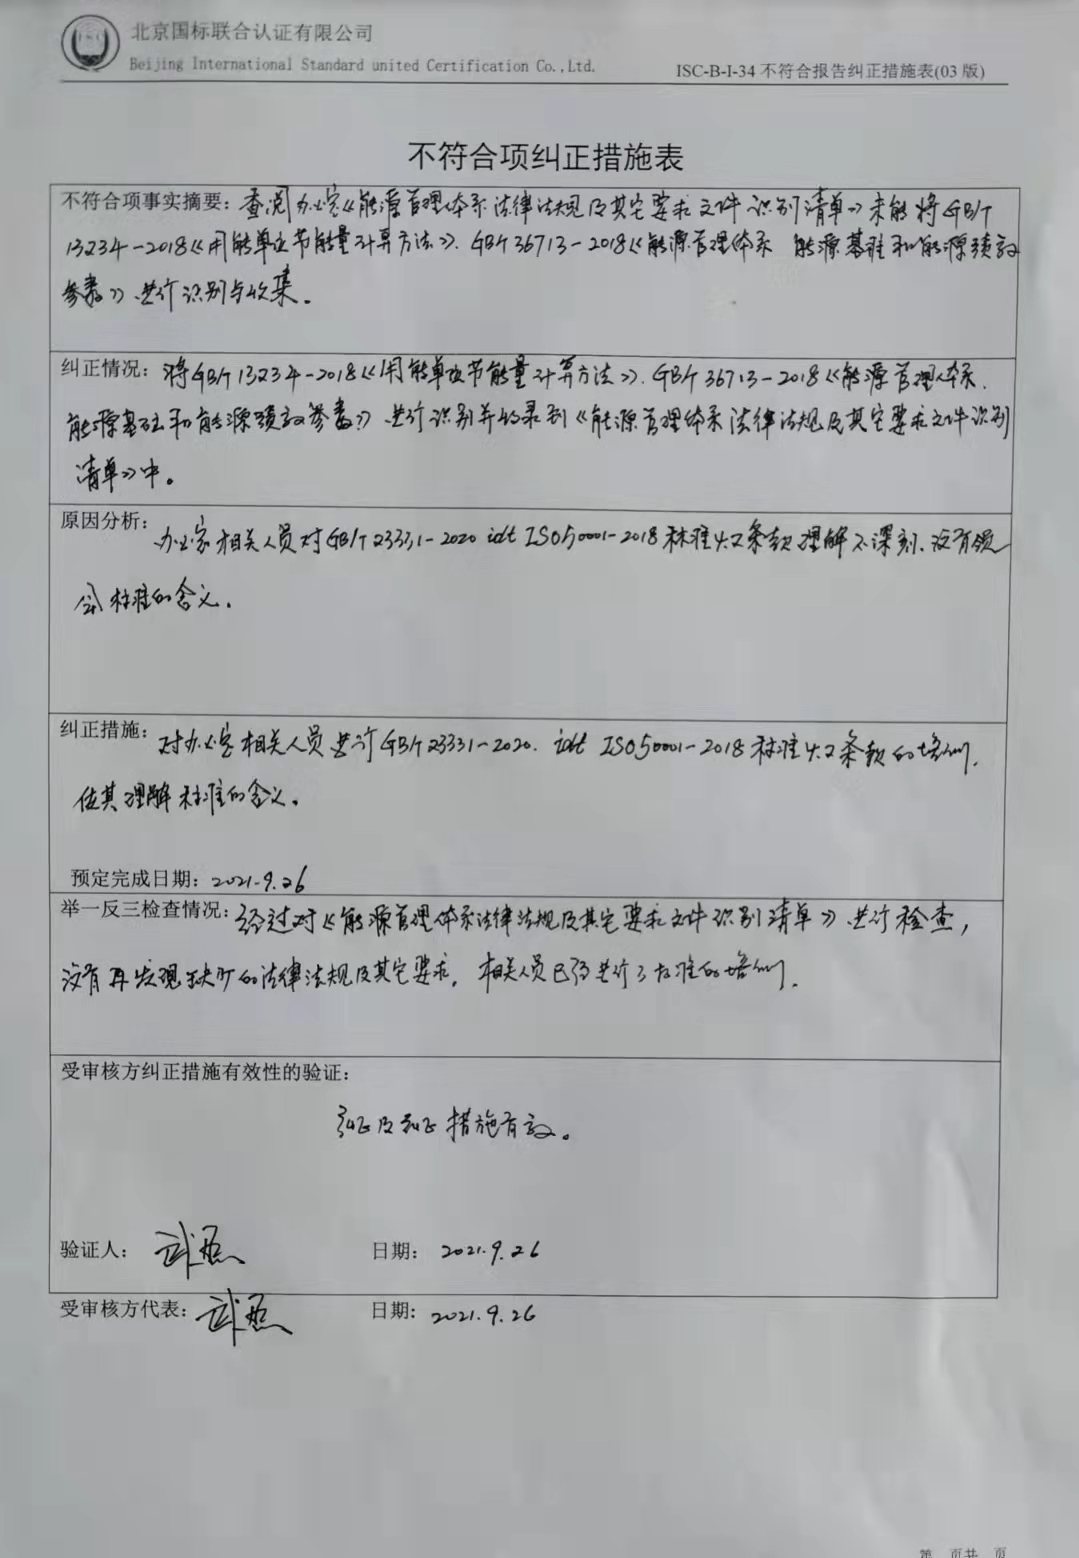 北京国标联合认证有限公司
Beijing International Standard united Certification Co.,Ltd.
ISC-B-I-34 不符合报告纠正措施表(03 版)
不符合项纠正措施表
不符合项事实摘要：查阅办公室《能源管理体系法律法规及其它要求文件识别清单》未能将GB/T
13234-2018《用能单位节能量计算方法》、GB/T 36713-2018《能源管理体系 能源基准和能源绩效
参数》进行识别与收集。
纠正情况：将GB/T 13234-2018《用能单位节能量计算方法》、GB/T 36713-2018《能源管理体系、
能源基准和能源绩效参数》进行识别并收录到《能源管理体系法律法规及其它要求文件识别
清单》中。
原因分析：办公室相关人员对GB/T 23331-2020 idt ISO50001-2018标准4.2条款理解不深刻、没有领
会标准的含义。
纠正措施：对办公室相关人员进行GB/T 23331-2020. idt ISO50001-2018标准4.2条款的培训，
使其理解标准的含义。
预定完成日期：2021.9.26
举一反三检查情况：经过对《能源管理体系法律法规及其它要求文件识别清单》进行检查，
没有再发现缺少的法律法规及其它要求。相关人员已经进行了标准的培训。
受审核方纠正措施有效性的验证：
纠正及纠正措施有效。
验证人： 日期：2021.9.26
受审核方代表： 日期：2021.9.26
第 页共 页